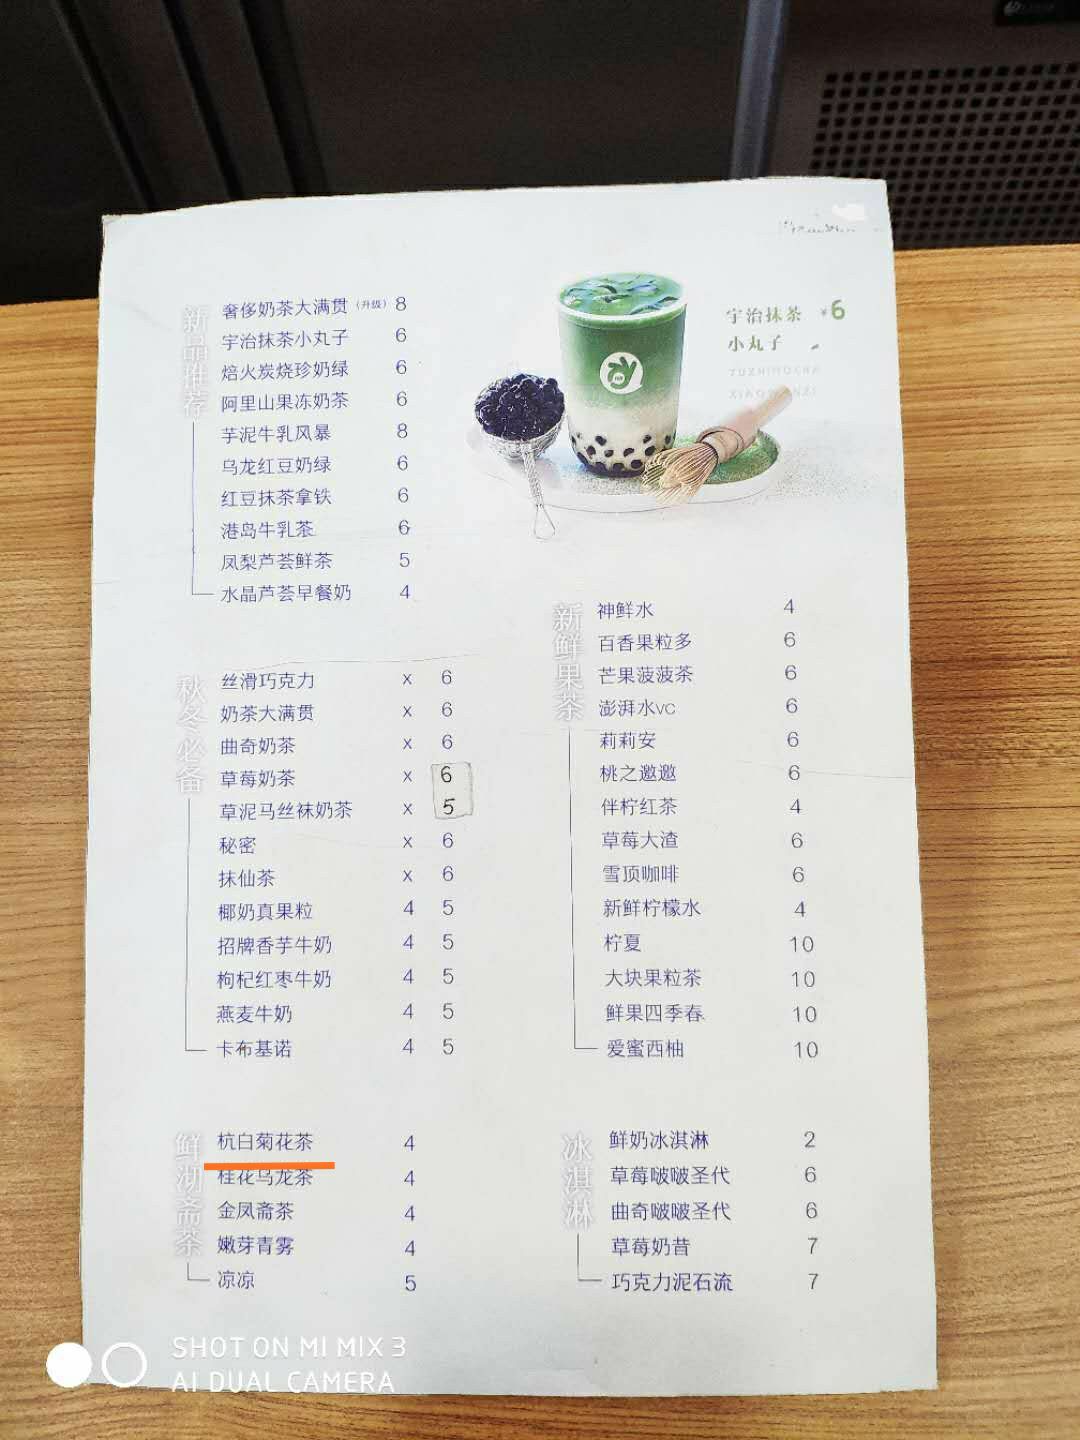 新品推荐
奢侈奶茶大满贯(升级) 8
宇治抹茶小丸子 6
焙火炭烧珍奶绿 6
阿里山果冻奶茶 6
芋泥牛乳风暴 8
乌龙红豆奶绿 6
红豆抹茶拿铁 6
港岛牛乳茶 6
凤梨芦荟鲜茶 5
水晶芦荟早餐奶 4
宇治抹茶 ¥6
小丸子
YUZHIMOCHA
秋冬必备
丝滑巧克力 x 6
奶茶大满贯 x 6
曲奇奶茶 x 6
草莓奶茶 x 6
草泥马丝袜奶茶 x 5
秘密 x 6
抹仙茶 x 6
椰奶真果粒 4 5
招牌香芋牛奶 4 5
枸杞红枣牛奶 4 5
燕麦牛奶 4 5
卡布基诺 4 5
新鲜果茶
神鲜水 4
百香果粒多 6
芒果菠菠茶 6
澎湃水VC 6
莉莉安 6
桃之邀邀 6
伴柠红茶 4
草莓大渣 6
雪顶咖啡 6
新鲜柠檬水 4
柠夏 10
大块果粒茶 10
鲜果四季春 10
爱蜜西柚 10
鲜沏斋茶
杭白菊花茶 4
桂花乌龙茶 4
金凤斋茶 4
嫩芽青雾 4
凉凉 5
冰淇淋
鲜奶冰淇淋 2
草莓啵啵圣代 6
曲奇啵啵圣代 6
草莓奶昔 7
巧克力泥石流 7
SHOT ON MI MIX 3
AI DUAL CAMERA